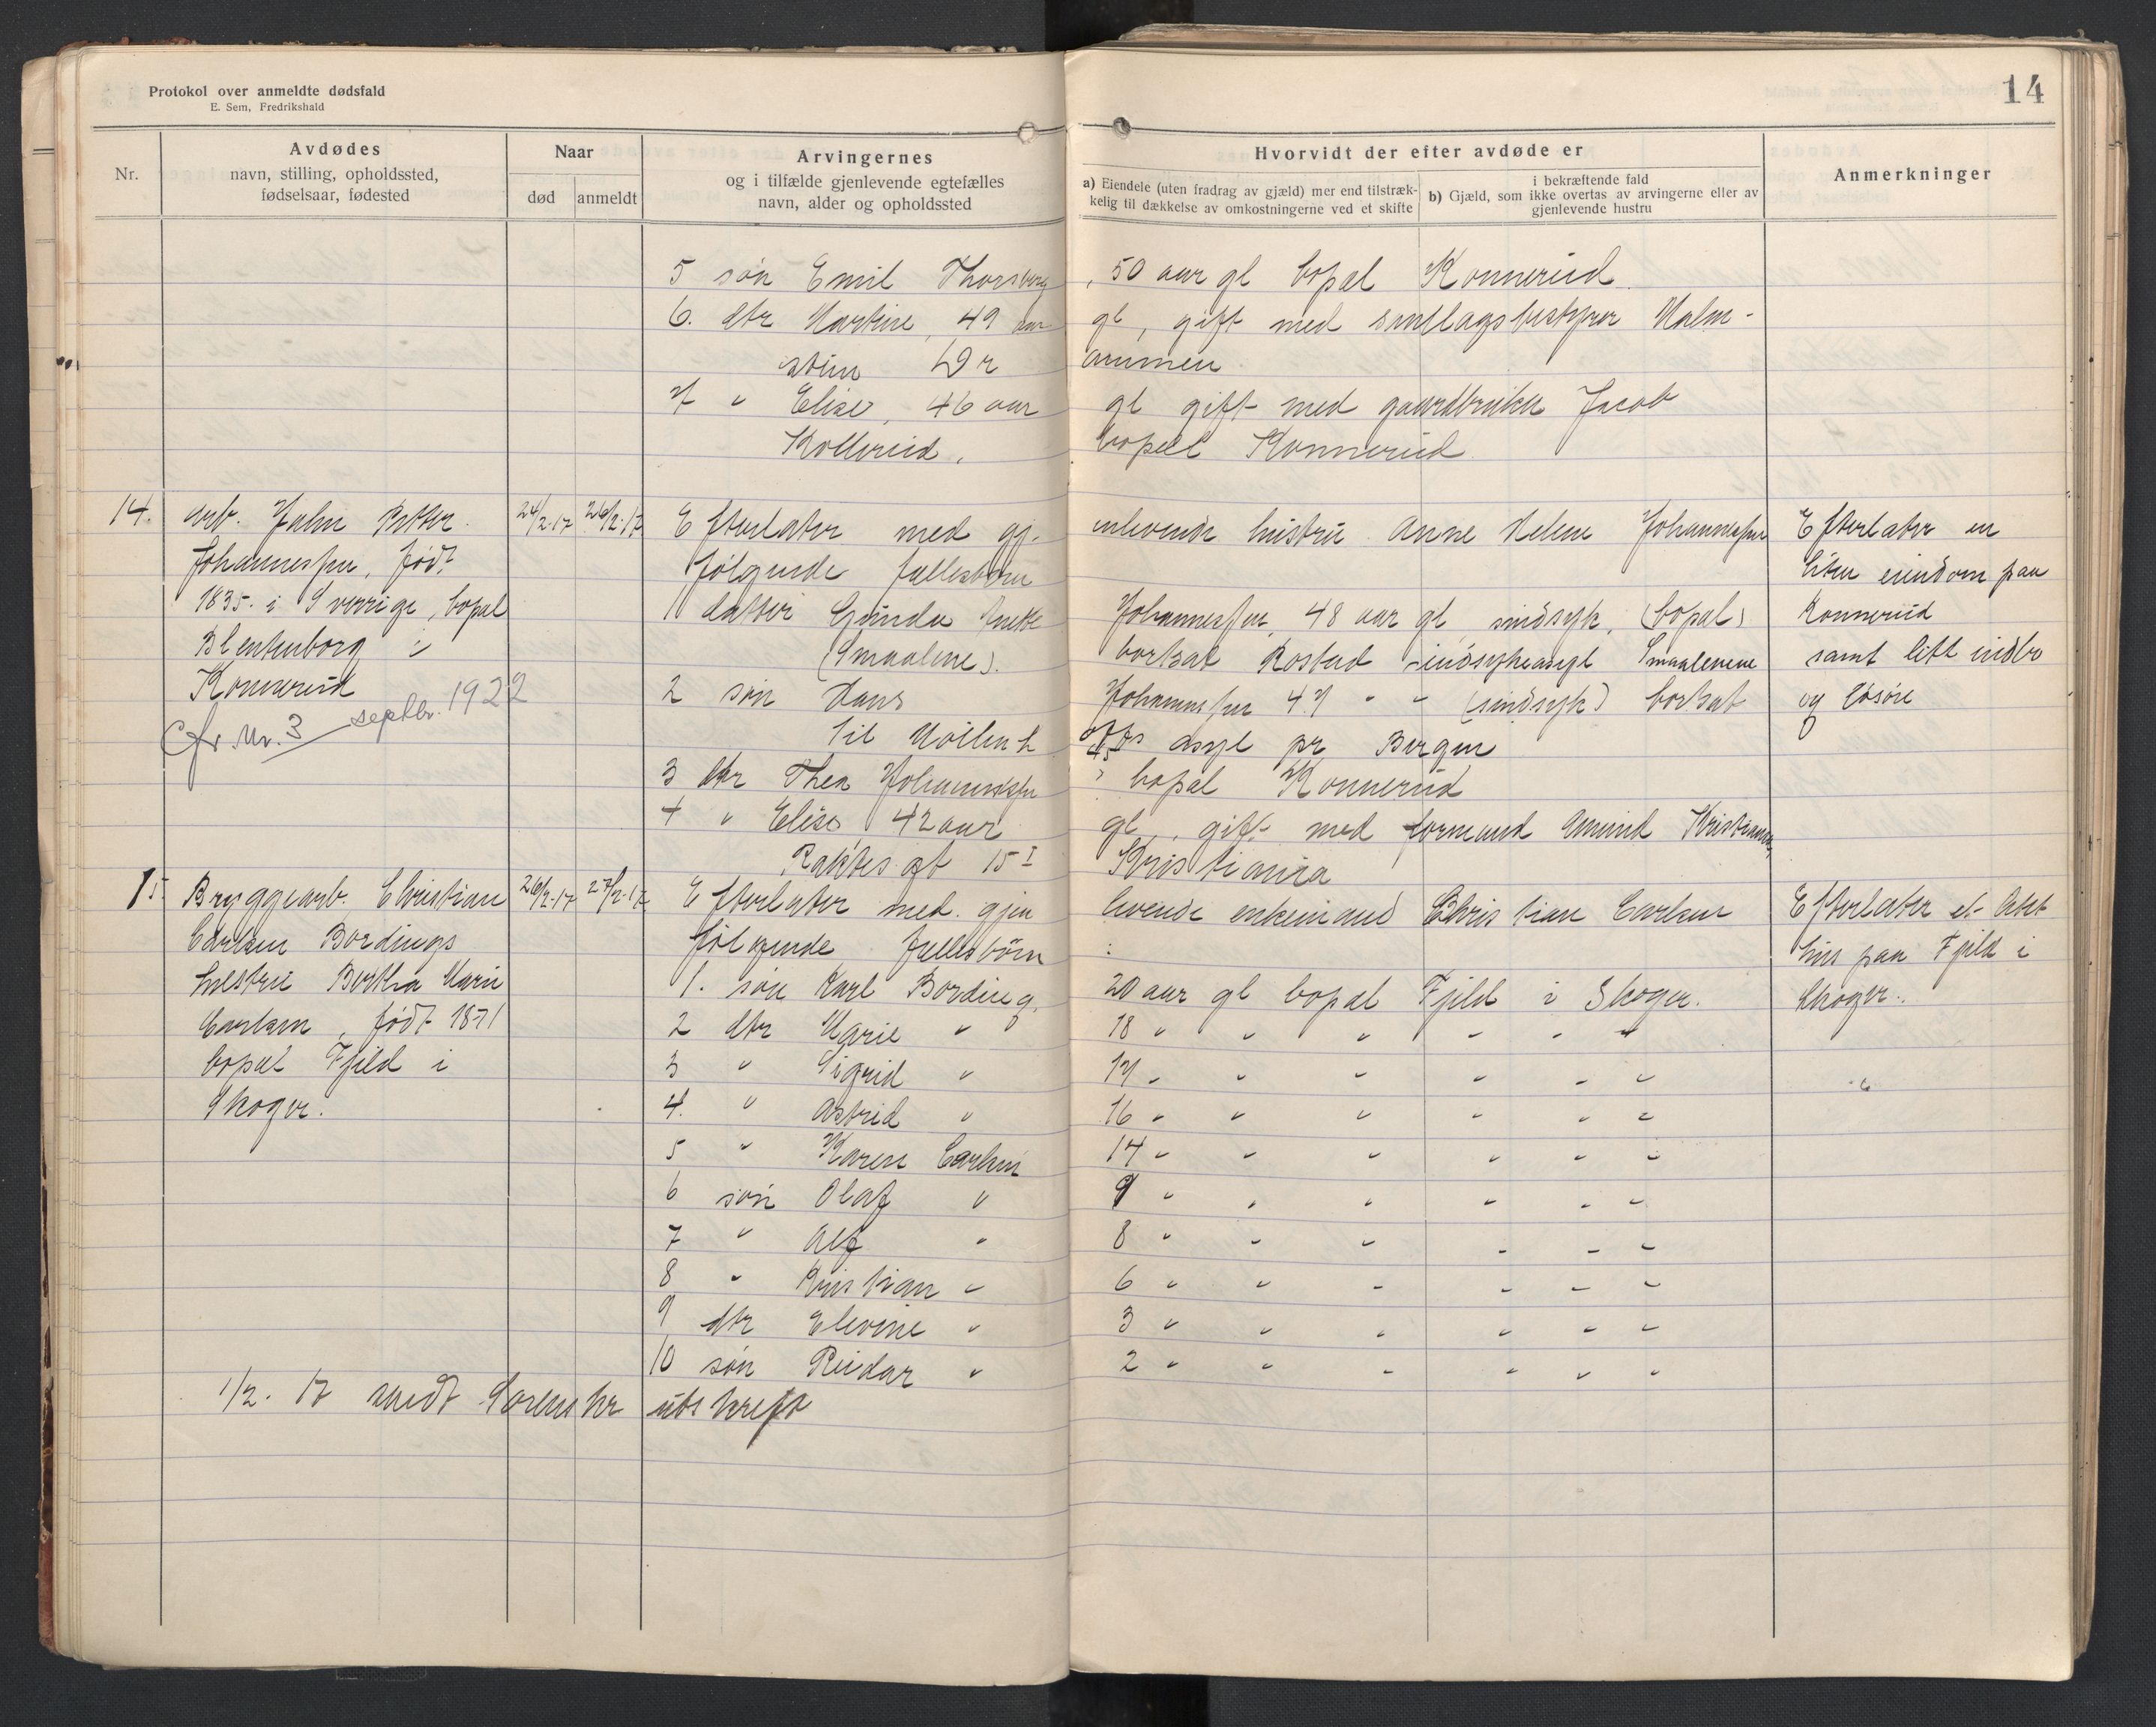 Protokol over anmeldte dødsfald
E. Sem, Fredrikshald
14
Nr.
Avdødes
navn, stilling, opholdssted,
fødselsaar, fødested
Naar
død
anmeldt
Arvingernes
og i tilfælde gjenlevende egtefælles
navn, alder og opholdssted
Hvorvidt der efter avdøde er
a) Eiendele (uten fradrag av gjæld) mer end tilstræk-
kelig til dækkelse av omkostningerne ved et skifte
i bekræftende fald
b) Gjæld, som ikke overtas av arvingerne eller av
gjenlevende hustru
Anmerkninger
5 søn Emil Thorsberg, 50 aar gl bopæl Konnerud.
6. dtr Martine, 49 aar gl, gift med samlagsbestyrer Malm-
stein Drammen
7 " Elise, 46 aar gl gift med gaardbruker Jacob
Kollerud, bopæl Konnerud.
14. arb. John Petter 24/2.17 26/2.17 Efterlater med gj-enlevende hustru Anne Helene Johannessen Efterlater en
Johannessen, født følgende fællesbørn liten eiendom paa
1835. i Sverrige, bopæl 1 datter Gunda Anette Johannessen, 48 aar gl, sindsyk, (bopæl) Konnerud
Blektenborg i (Smaalene). bortsat Rostad sindsykeasyl Smaalenene samt litt indbo
Konnerud 2 søn Hans Johannessen 47 " " (sindsyk) bortsat og løsøre
Cfr. Nr. 3 septbr. 1922
til Møllend als asyl pr Bergen
3 dtr Thea Johannessen 45, bopæl Konnerud
4 " Elise 42 aar gl, gift med formand Amund Kristiansen,
15 I Kristiania
15. Bryggearb. Christian 26/2.17 27/2.17 Efterlater med gjen levende enkemand Christian Carlsen Efterlater et litet
Carlsen Bordings følgende fællesbørn : hus paa Fjeld i
hustru Bertha Marie 1. søn Karl Bording, 20 aar gl bopæl Fjeld i Skoger. Skoger.
Carlsen, født 1871 2 dtr Marie " 18 " " " " " "
bopæl Fjeld i 3 " Sigrid " 17 " " " " " "
Skoger. 4. " Astrid " 16 " " " " " "
5 " Karen Carlsen 14 " " " " " "
6 søn Olaf " 9 " " " " " "
7 " Alf " 8 " " " " " "
8 " Kristian " 6 " " " " " "
9 dtr Elevine " 3 " " " " " "
10 søn Reidar " 2 " " " " " "
1/2. 17 sendt Sorenskr utskrift